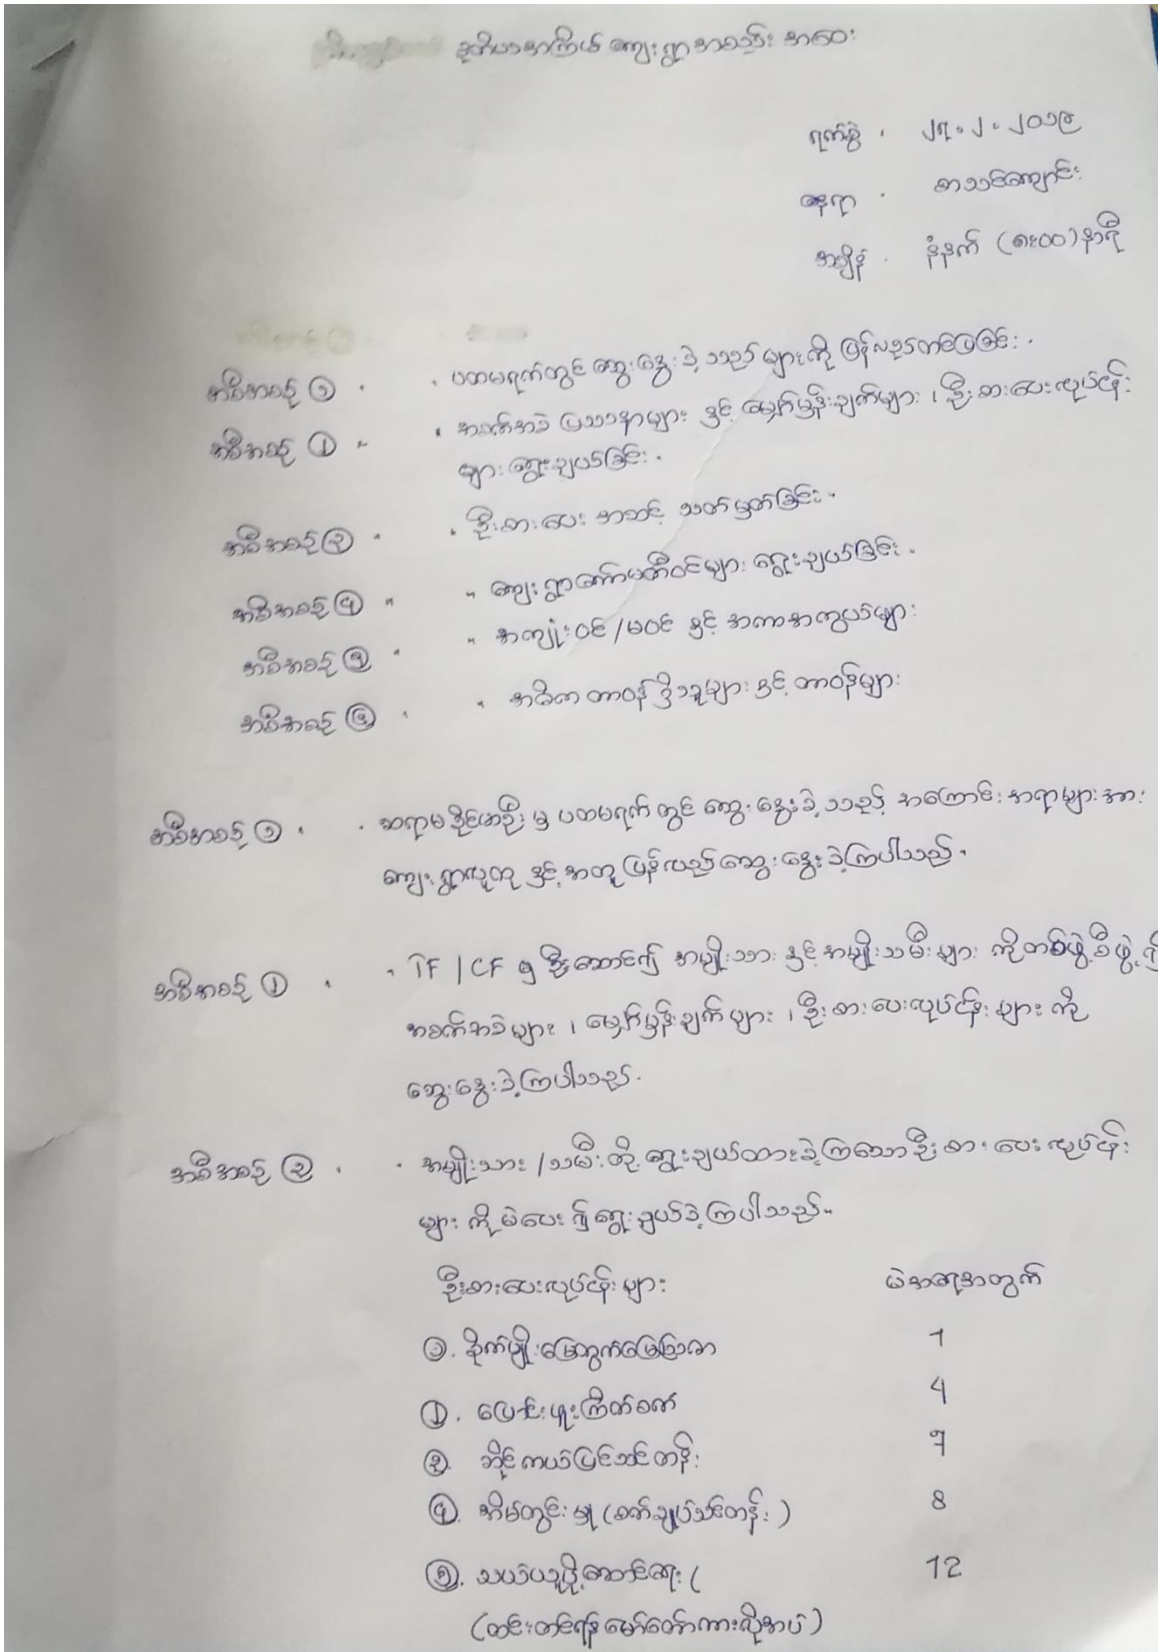 ဒုတိယအကြိမ် ကျေးရွာအစည်း အဝေး
ရက်စွဲ ၊ ၂၇.၂.၂၀၁၉
နေရာ - စာသင်ကျောင်း
အချိန် - နံနက် (၈း၀၀) နာရီ
အစီအစဉ် ၁ - ပထမရက်တွင် ဆွေးနွေးခဲ့သည် များကို ပြန်လည်တင်ပြခြင်း ။
အစီအစဉ် ၂ - အခက်အခဲ ပြဿနာများ နှင့် မျှော်မှန်းချက်များ ၊ ဦးစားပေးလုပ်ငန်း
များ ရွေးချယ်ခြင်း ။
အစီအစဉ် ၃ - ဦးစားပေး အဆင့် သတ်မှတ်ခြင်း ။
အစီအစဉ် ၄ " " ကျေးရွာကော်မတီဝင်များ ရွေးချယ်ခြင်း ။
အစီအစဉ် ၅ " " အကျုံးဝင် / မဝင် နှင့် အကာအကွယ်များ
အစီအစဉ် ၆ - အဓိက တာဝန် ရှိသူများ နှင့် တာဝန်များ
အစီအစဉ် ၁ - ဆရာမ ခိုင်ဇာဦး မှ ပထမရက် တွင် ဆွေးနွေးခဲ့သည့် အကြောင်း အရာများအား
ကျေးရွာလူထု နှင့် အတူ ပြန်လည်ဆွေးနွေးခဲ့ကြပါသည် ။
အစီအစဉ် ၂ - TF / CF မှ ဦးဆောင်၍ အမျိုးသား နှင့် အမျိုးသမီးများ ကို တစ်ဖွဲ့စီဖွဲ့၍
အခက်အခဲများ ၊ မျှော်မှန်းချက်များ ၊ ဦးစားပေးလုပ်ငန်းများ ကို
ဆွေးနွေးခဲ့ကြပါသည် ။
အစီအစဉ် ၃ - အမျိုးသား / သမီးတို့ ရွေးချယ်ထားခဲ့ကြသော ဦးစားပေးလုပ်ငန်း
များ ကို မဲပေး၍ ရွေးချယ်ခဲ့ကြပါသည် ။
ဦးစားပေးလုပ်ငန်းများ မဲအရေအတွက်
၁. စိုက်ပျိုးမြေအတွက်မြေသြဇာ 7
၂. ပြောင်းဖူးကြိတ်စက် 4
၃. ဆိုင်ကယ်ပြင်သင်တန်း 9
၄. အိမ်တွင်းမှု (စက်ချုပ်သင်တန်း) 8
၅. သယ်ယူပို့ဆောင်ရေး ( 12
(ထင်းတင်ရန် မော်တော်ကားလိုအပ်)